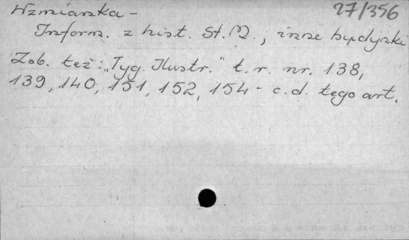 Wzmianka - 27/356
Inform. z hist. St. M., inne budynki
Zob. też: "Tyg. Ilustr." t. r. nr. 138,
139, 140, 151, 152, 154 - c.d. tego art.